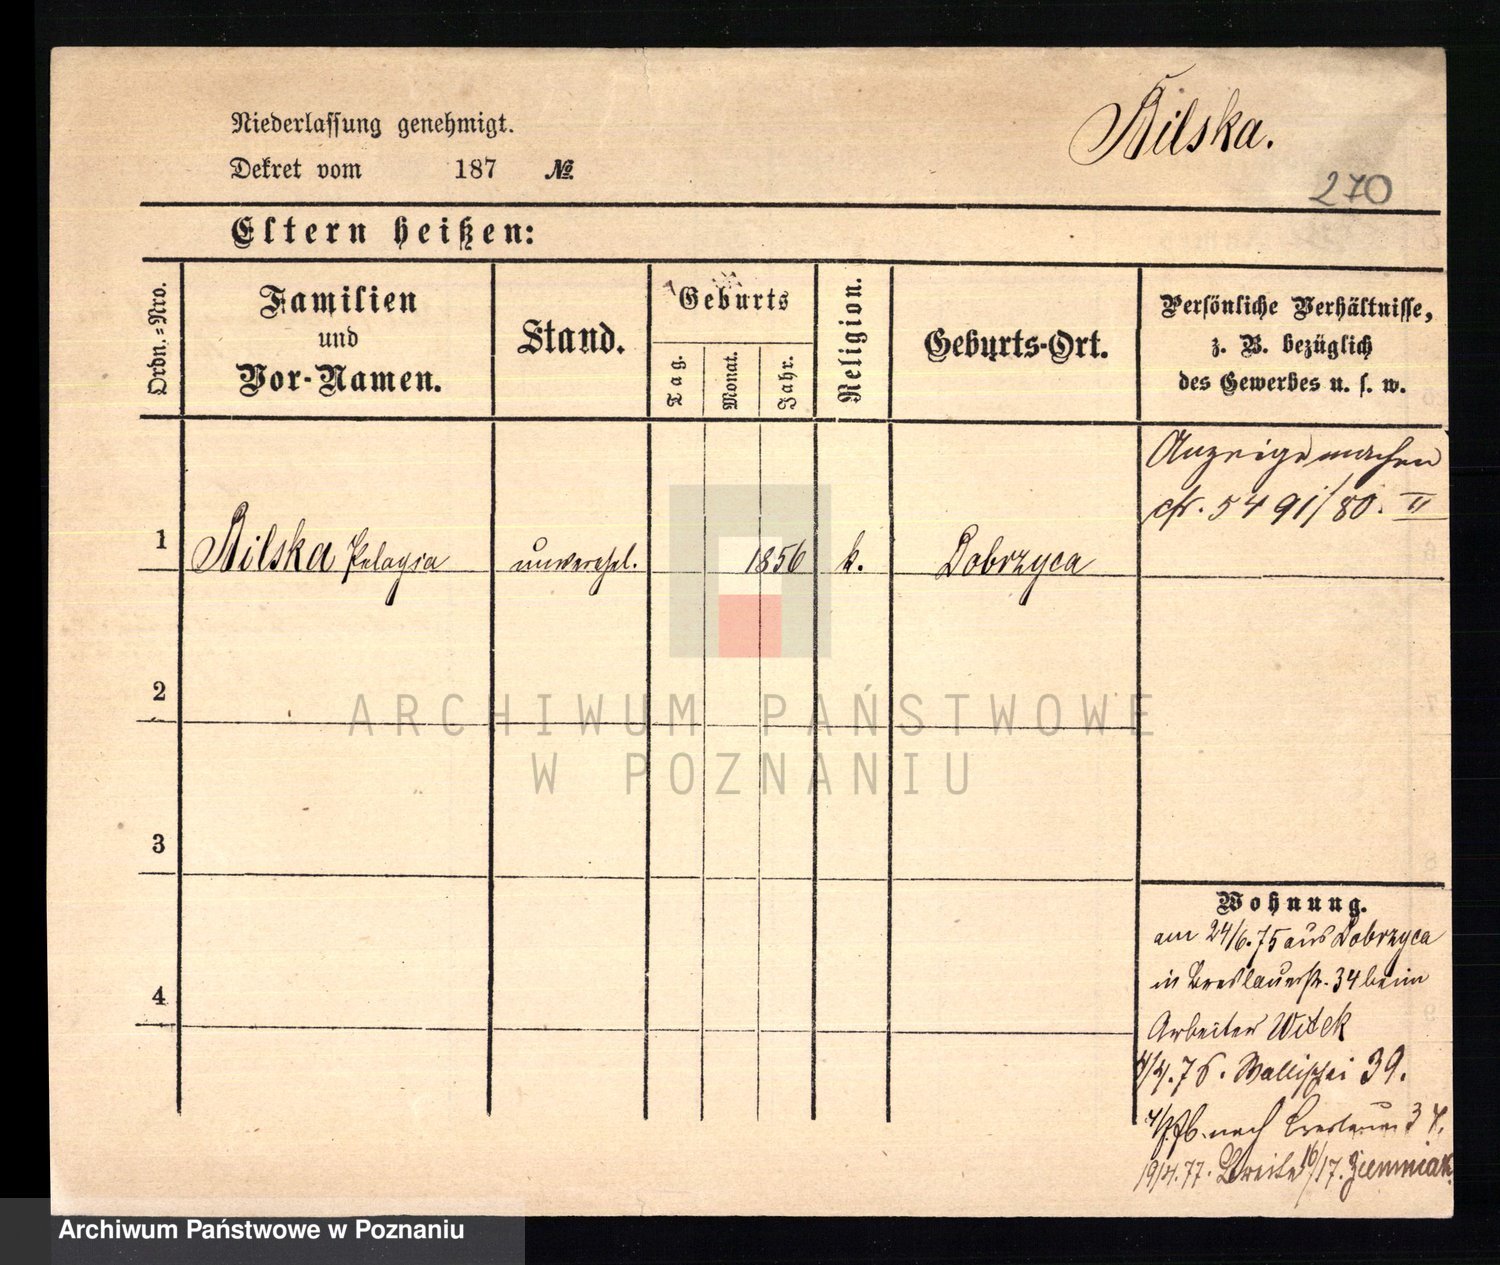 Niederlassung genehmigt.
Dekret vom 187 №
Bilska.
270
Eltern heißen:
Ordn.-Nro.
Familien
und
Vor-Namen.
Stand.
Geburts
Tag.
Monat.
Jahr.
Religion.
Geburts-Ort.
Persönliche Verhältnisse,
z. B. bezüglich
des Gewerbes u. s. w.
Anzeige machen
cfr. 5491/80. II
1 Bilska Pelagia unverehel. 1856 k. Dobrzyca
2
3
4
Wohnung.
am 24/6. 75 aus Dobrzyca
in Breslauerstr. 34 beim
Arbeiter Witek
76. Wallischei 39.
nach Breslauer 34.
77. Breite 16/17. Ziemniak
ARCHIWUM PAŃSTWOWE
W POZNANIU
Archiwum Państwowe w Poznaniu